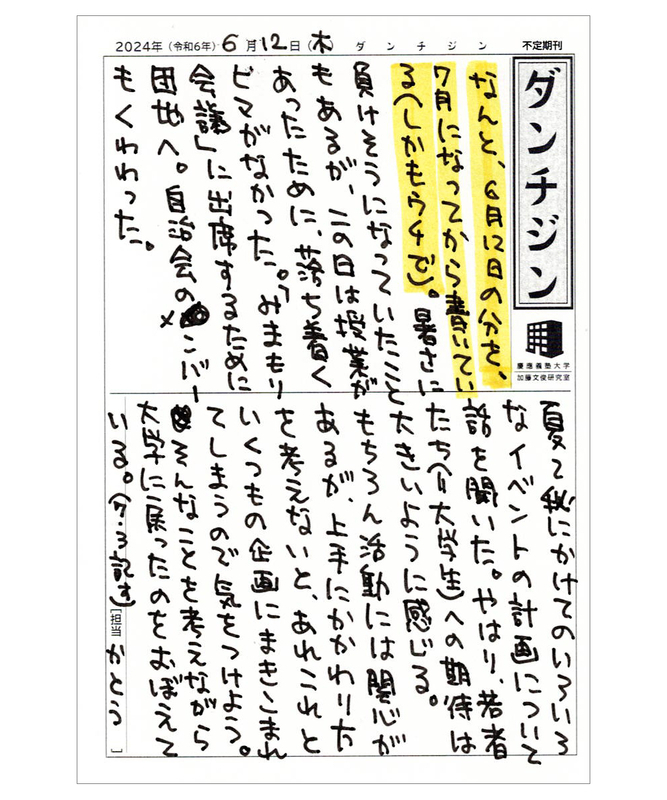 2024年(令和6年)6月12日(木) ダンチジン 不定期刊
ダンチジン
慶應義塾大学
加藤文俊研究室
なんと、6月12日の分を、
7月になってから書いてい
る(しかもウチで)。暑さに
負けそうになっていたこと
もあるが、この日は授業が
あったために、落ち着く
ヒマがなかった。「みまもり
会議」に出席するために
団地へ。自治会のメンバー
もくわわった。
夏と秋にかけてのいろいろ
なイベントの計画について
話を聞いた。やはり、若者
たち(=大学生)への期待は
大きいように感じる。
もちろん活動には関心が
あるが、上手にかかわり方
を考えないと、あれこれと
いくつもの企画にまきこまれ
てしまうので気をつけよう。
そんなことを考えながら
大学に戻ったのをおぼえて
いる。(7・3記す)
[担当 かとう]